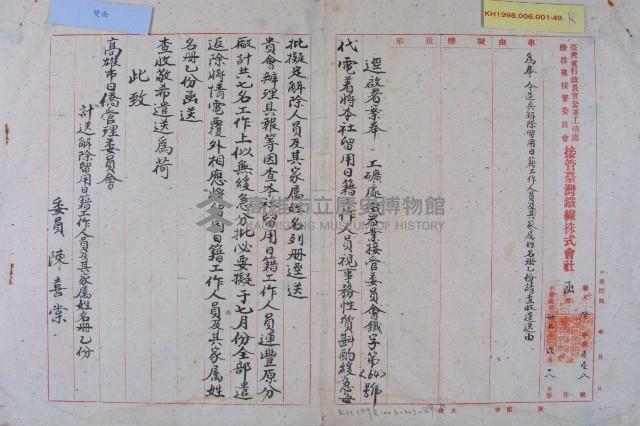 雙面
KH1998.006.001-49.K
臺灣省行政長官公署工礦處
接管委員會 接管臺灣鐵線株式會社 函
事由
擬辦
批示
為奉 令造具解除留用日籍工作人員及其家屬姓名冊乙份請查收遣送由
逕啟者案奉 工礦處 業接管委員會鐵字第(64)號
代電着將本社留用日籍工作人員視事務性質斟酌緩急每
批擬定解除人員及其家屬姓名列冊逕送
貴會辦理具報等因查本 留用日籍工作人員連豐原分
廠計共七名工作上似無緩急分批必要擬于七月份全部遣
返除將情電覆外相應將 用日籍工作人員及其家屬姓
名冊乙份函送
查收敬希遣送為荷
此致
高雄市日僑管理委員會
計送解除留用日籍工作人員及其家屬姓名冊乙份
委員 陳喜棠
高雄市立歷史博物館
KAOHSIUNG MUSEUM OF HISTORY